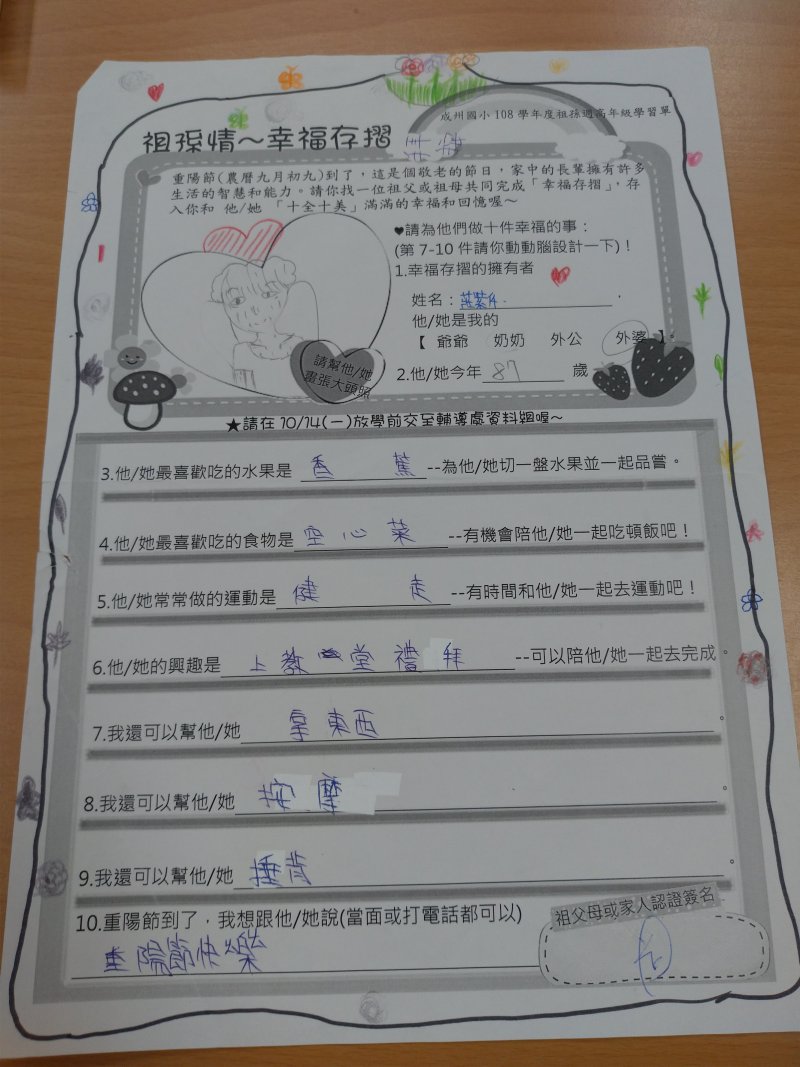 成州國小 108 學年度祖孫週高年級學習單
祖孫情～幸福存摺
重陽節(農曆九月初九)到了，這是個敬老的節日，家中的長輩擁有許多
生活的智慧和能力。請你找一位祖父或祖母共同完成「幸福存摺」，存
入你和 他/她 「十全十美」滿滿的幸福和回憶喔～
♥請為他們做十件幸福的事：
(第 7-10 件請你動動腦設計一下)！
1.幸福存摺的擁有者
姓名：
他/她是我的
【 爺爺 奶奶 外公 外婆 】。
2.他/她今年 87 歲
請幫他/她
畫張大頭照
★請在 10/14(一)放學前交至輔導處資料組喔～
3.他/她最喜歡吃的水果是 香蕉--為他/她切一盤水果並一起品嘗。
4.他/她最喜歡吃的食物是 空心菜--有機會陪他/她一起吃頓飯吧！
5.他/她常常做的運動是 健走--有時間和他/她一起去運動吧！
6.他/她的興趣是 上教堂禮拜--可以陪他/她一起去完成。
7.我還可以幫他/她 拿東西。
8.我還可以幫他/她 按摩。
9.我還可以幫他/她 捶背。
10.重陽節到了，我想跟他/她說(當面或打電話都可以)
重陽節快樂
祖父母或家人認證簽名